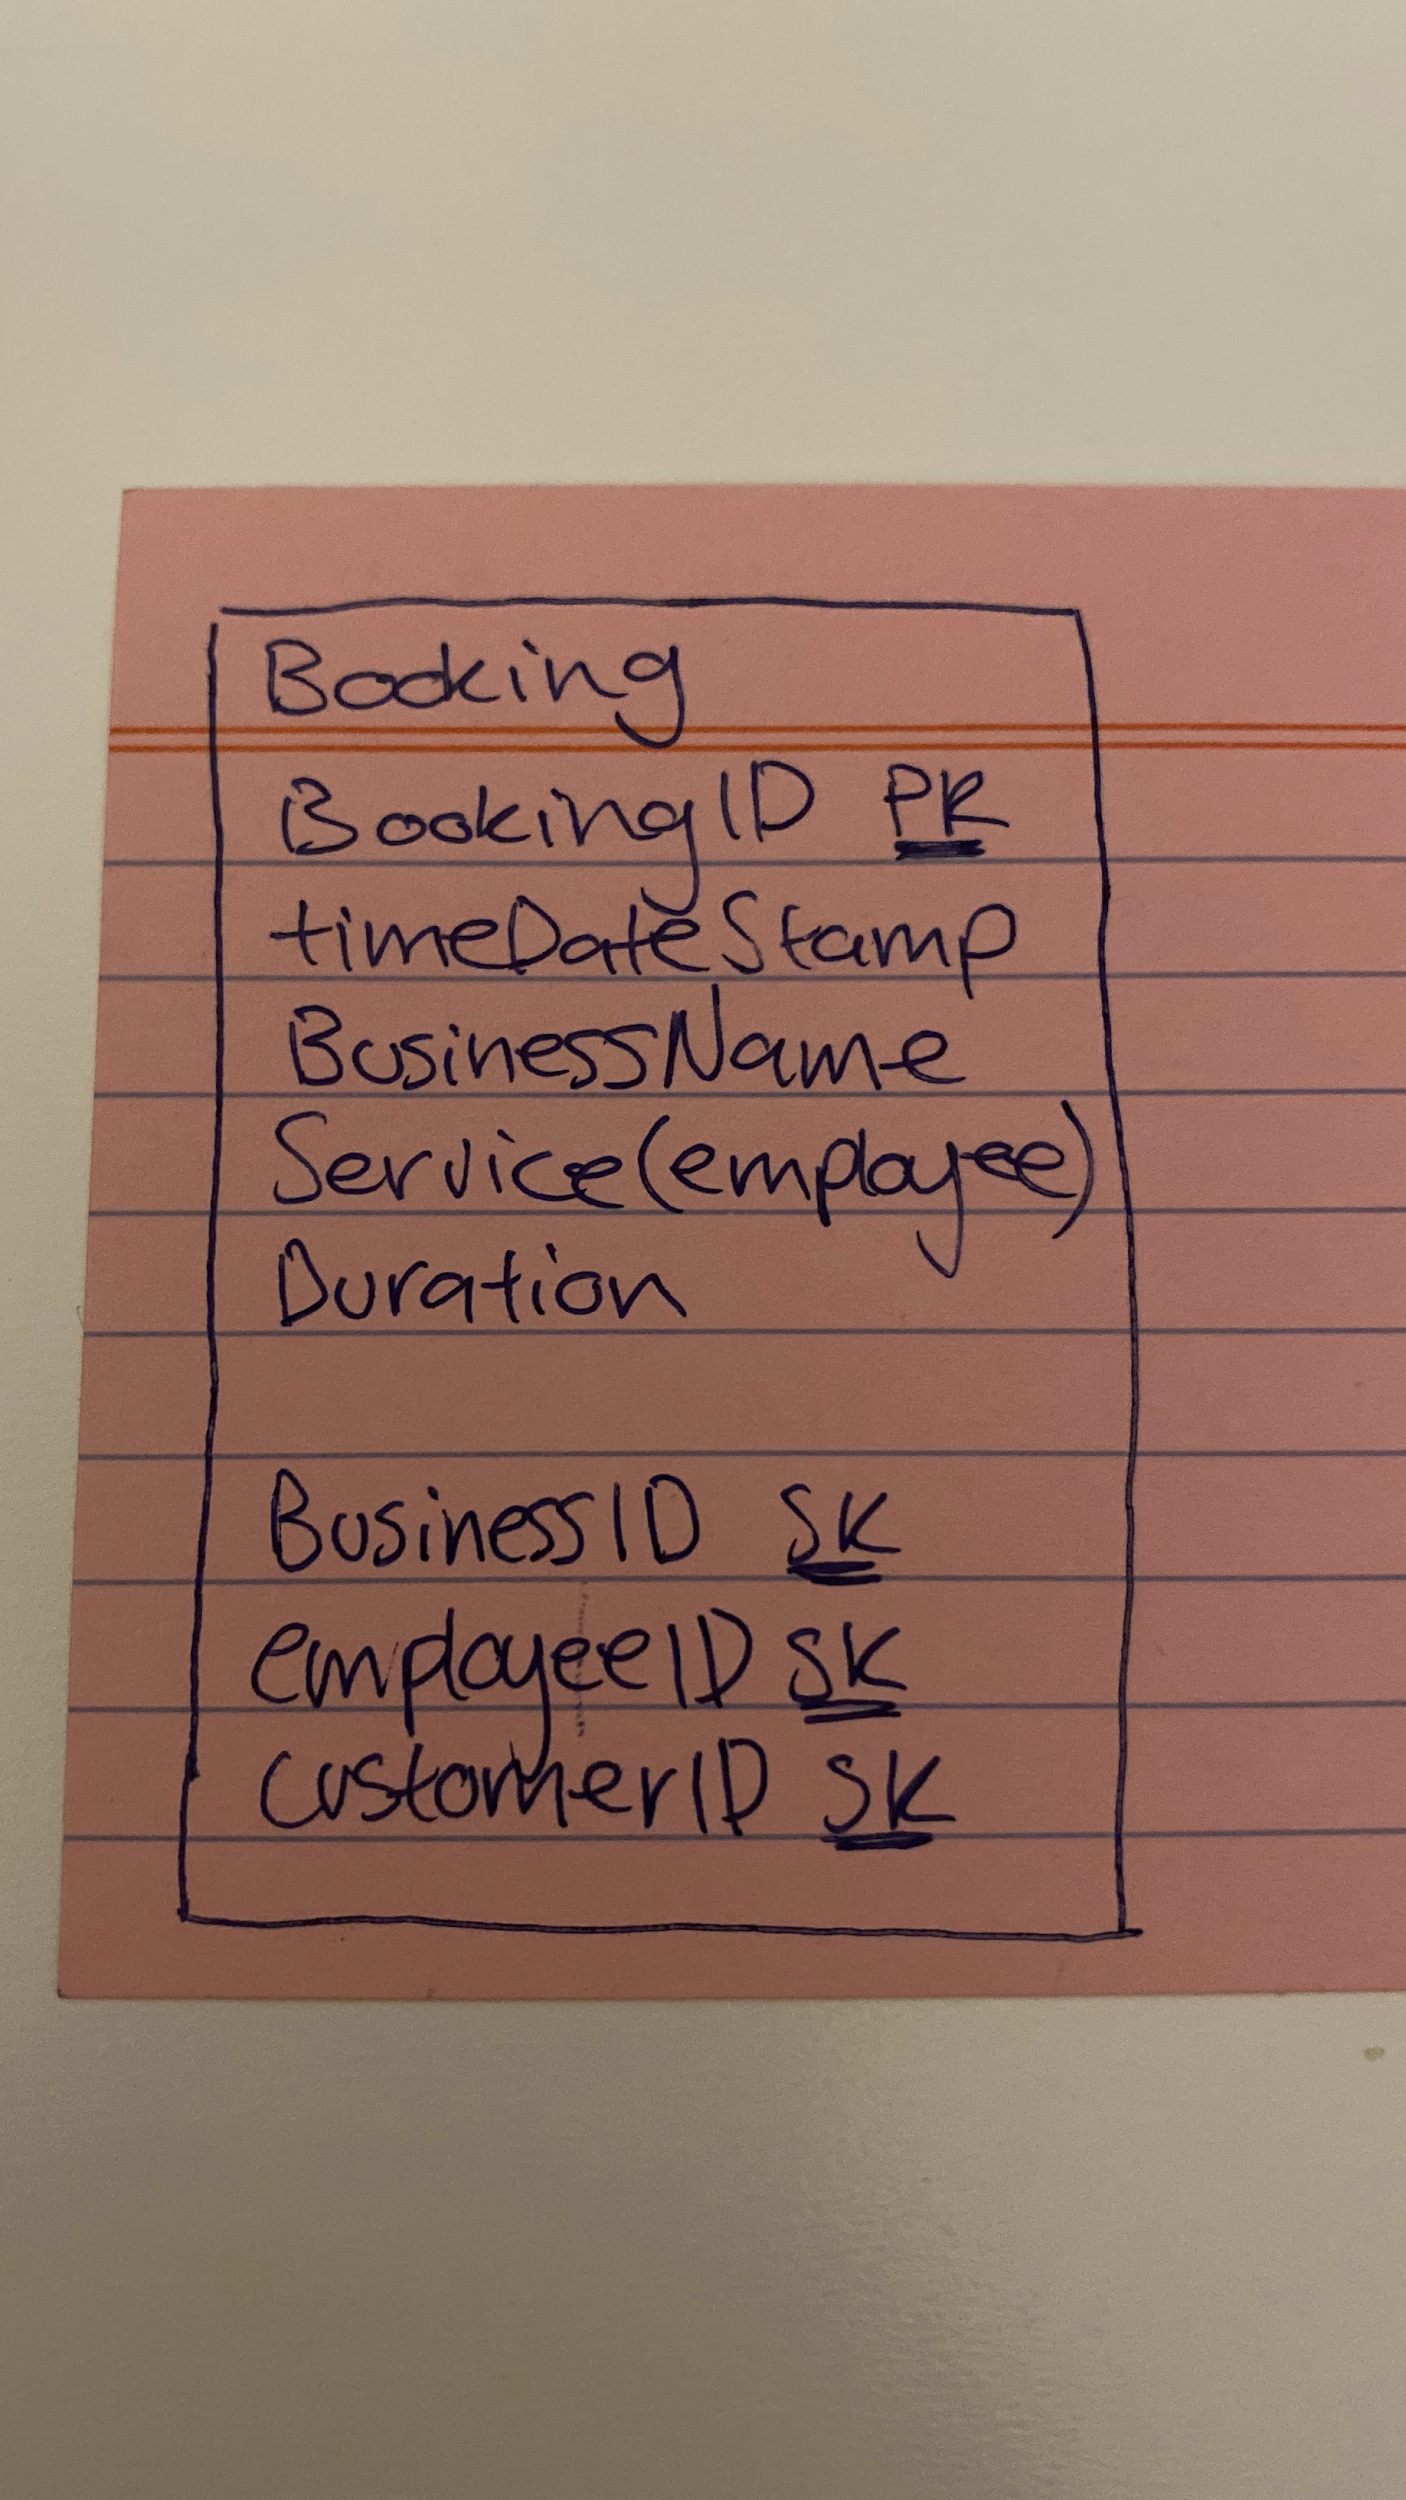 Booking
BookingID PK
timeDateStamp
BusinessName
Service(employee)
Duration
BusinessID SK
employeeID SK
customerID SK